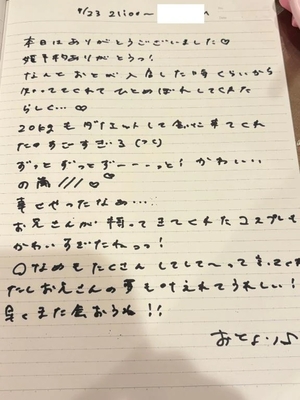 9/23 21:00〜
本日はありがとうございました♡
姫予約ありがとうっ!
なんとおとが入店した時くらいから
知っててくれてひとめぼれしてくれた
らしく…♡
20kgもダイエットして会いに来てくれ
たのすごすぎる(つ;)
ずっとずっとずーーーっと!かわいい
の高///♡♡
幸せやったなぁ…
お兄さんが持ってきてくれたコスプレも
かわいすぎたねっっ!
○なめもたくさんしてして〜って
たしお兄さんの夢も叶えれてうれしい!
早くまた会おうね!!
おとより